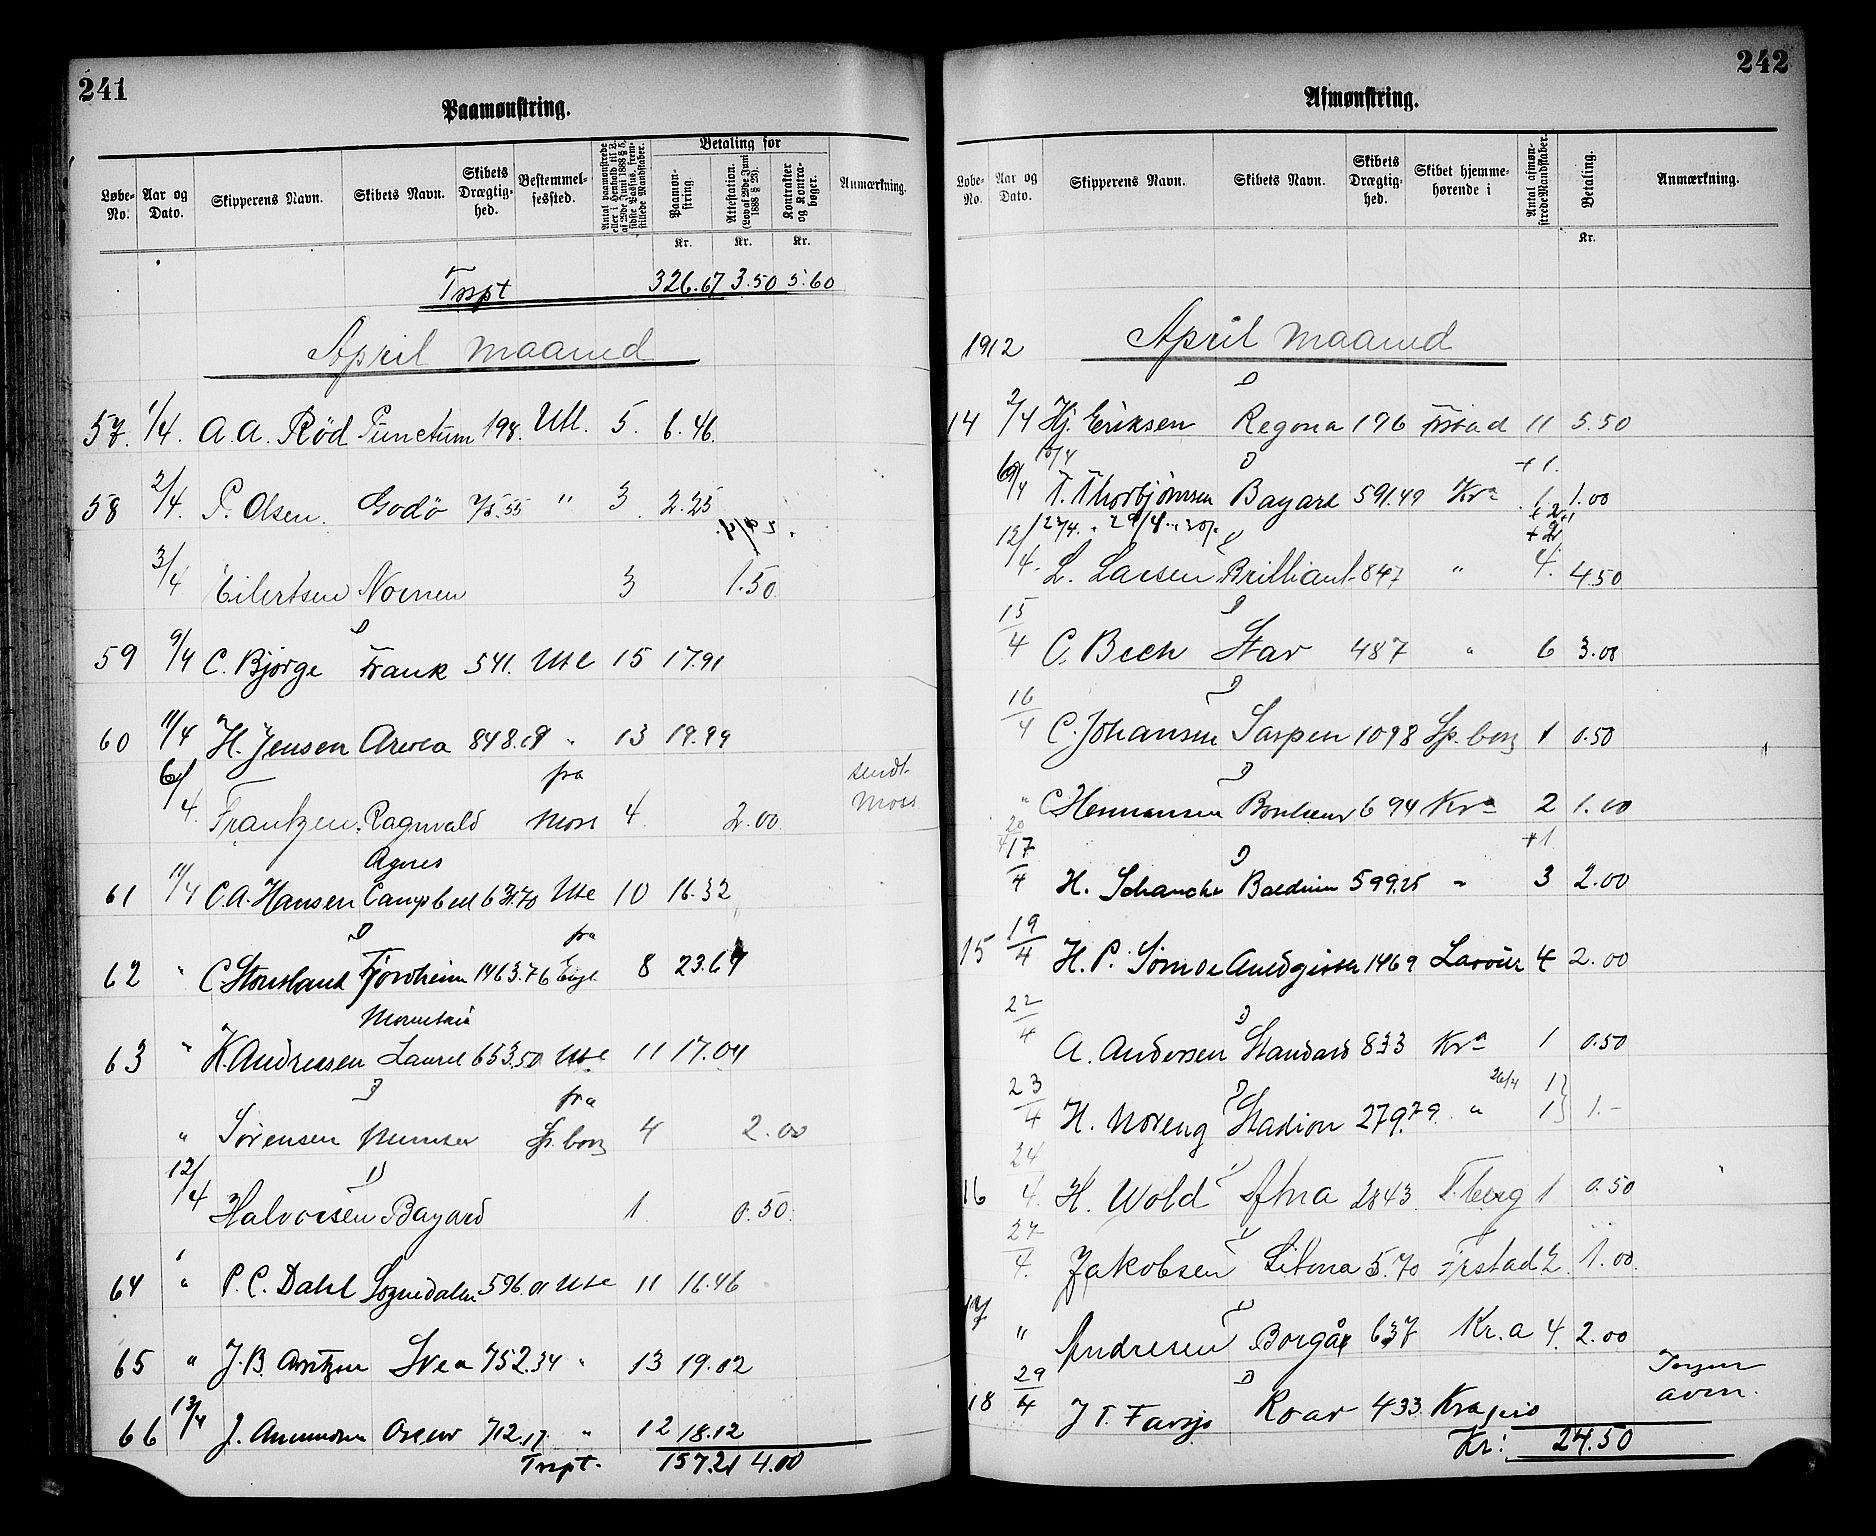 241
Paamønstring.
Løbe-No.
Aar og Dato.
Skipperens Navn.
Skibets Navn.
Skibets Drægtig-hed.
Bestemmel-sessted.
Antal paamønstrede eller i Henhold til L. af 29de Juni 1888 § 5, sidste Passus, frem-stillede Mandskaber.
Betaling for
Paamøn-string.
Attestation. (Lov af 29de Juni 1888 § 28).
Kontrakter og Kontra-bøger.
Anmærkning.
Kr. Kr. Kr.
Trspt 326.67 3.50 5.60
April Maaned
57. 1/4. A. A. Rød Punctum 198. Utl. 5. 6.46.
58 2/4. P. Olsen. Godø 75.55 " 3 2.25
3/4 Eilertsen Nornen 3 1.50
59 9/4 C. Bjørge D Frank 541. Ute 15 17.91
60 11/4 H. Jensen 848.19 " 13 19.99
6/4 Frantzen. Ragnvald fra Moss 4 2.00 sendt Moss
61 11/4 C. A. Hansen Agnes Campbell 631.70 Ute 10 16.32
62 " C Stousland D Fjordheim 1463.76 fra Engl 8 23.64
63 " K. Andreasen Mountain Laurel 653.50 Ute 11 17.04
" Sørensen D fra Sp.borg 4 2.00
12/4 Halvorsen D Bayard 1. 0.50.
64 " P. C. Dahl Sognedalen 596.01 Ute 11 16.46
65 " J. B. Arntzen Svea 752.34 " 13 19.02
66 13/4 J. Amundsen Oscar 712.17 " 12 18.12
Trspt. 157.21 4.00
242
Afmønstring.
Løbe-No.
Aar og Dato.
Skipperens Navn.
Skibets Navn.
Skibets Drægtig-hed.
Skibet hjemme-hørende i
Antal afmøn-strede Mandskaber.
Betaling.
Anmærkning.
Kr.
1912 April Maaned
14 2/4 Hj. Eriksen D Regona 196 Frstad 11 5.50
10/4 + 1.
T. Thorbjørnsen D Bayard 591.49 Kra 1.00
12/4. L. Larsen D Brilliant 847 " 4. 4.50
15/4 C. Bech D Star 487 " 6 3.00
16/4 C. Johansen D Sarpen 1098 Sp.borg 1 0.50
" C Hermansen D 694 Kra 2 1.00
20/4 + 1
17/4 H. Schancke D Balduin 599.25 " 3 2.00
15 19/4 H. P. 1469 Larvik 4 2.00
22/4 A. Andersen D Standard 833 Kra 1 0.50
23/4 H. Noreng D Stadion 279.79. " 26/4 1 1} 1.-
16 24/4. H. Wold D Atna 2843. T.berg 1 0.50
27/4. Jakobsen D 570 Frstad 2. 1.00.
17 " Andresen D Borgå 637 Kr.a 4. 2.00
18 29/4 J T. D Roar 433. Kragerø Ingen avm.
Kr: 24.50